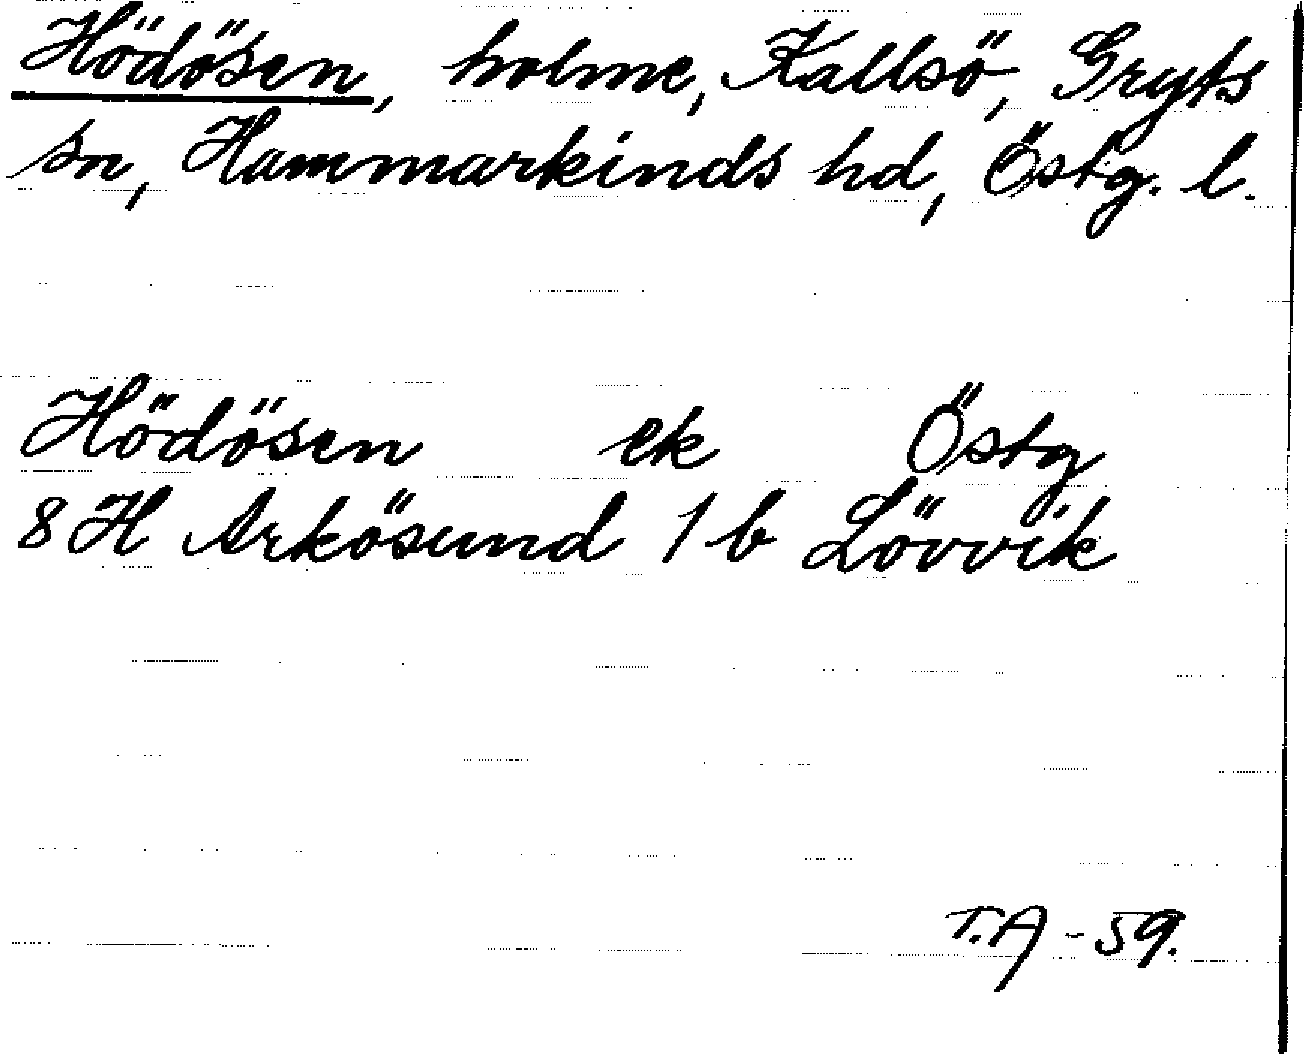 Hödösen, holme, Kallsö, Gryts
sn, Hammarkinds hd, Östg. l.
Hödösen ek Östg
8H Arkösund 1b Lövvik
T.A -59.